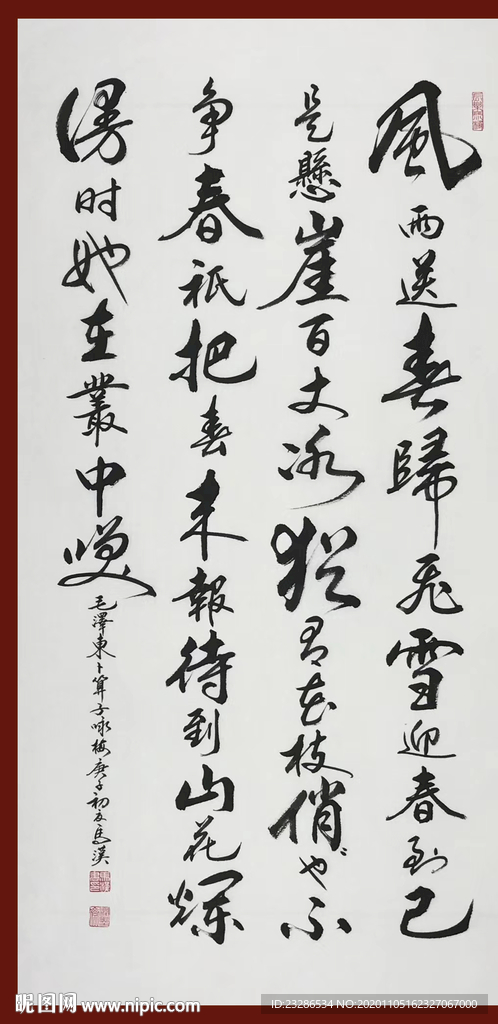 風雨送春歸飛雪迎春到已
是懸崖百丈冰猶有花枝俏〃也不
争春祇把春来報待到山花爛
漫时她在叢中咲
毛澤東卜算子咏梅庚子初
昵图网 www.nipic.com
ID:23286534 NO:20201105162327067000